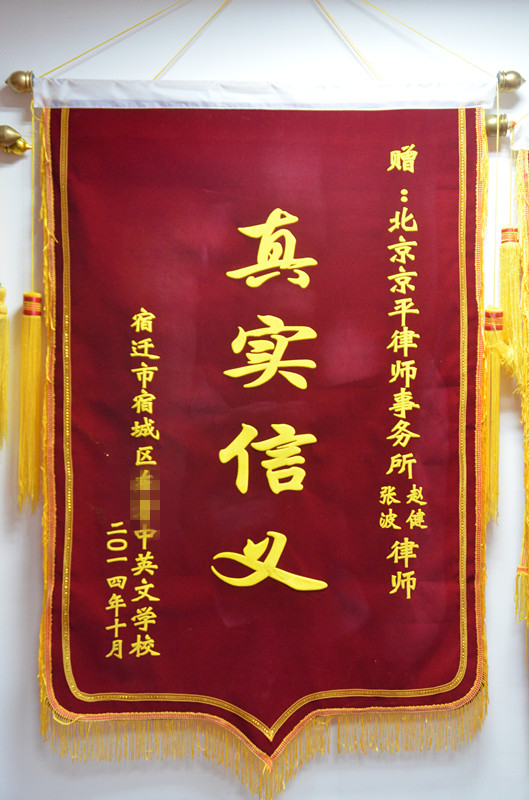 赠：北京京平律师事务所 赵健 张波 律师
真实信义
宿迁市宿城区 中英文学校
二〇一四年十月